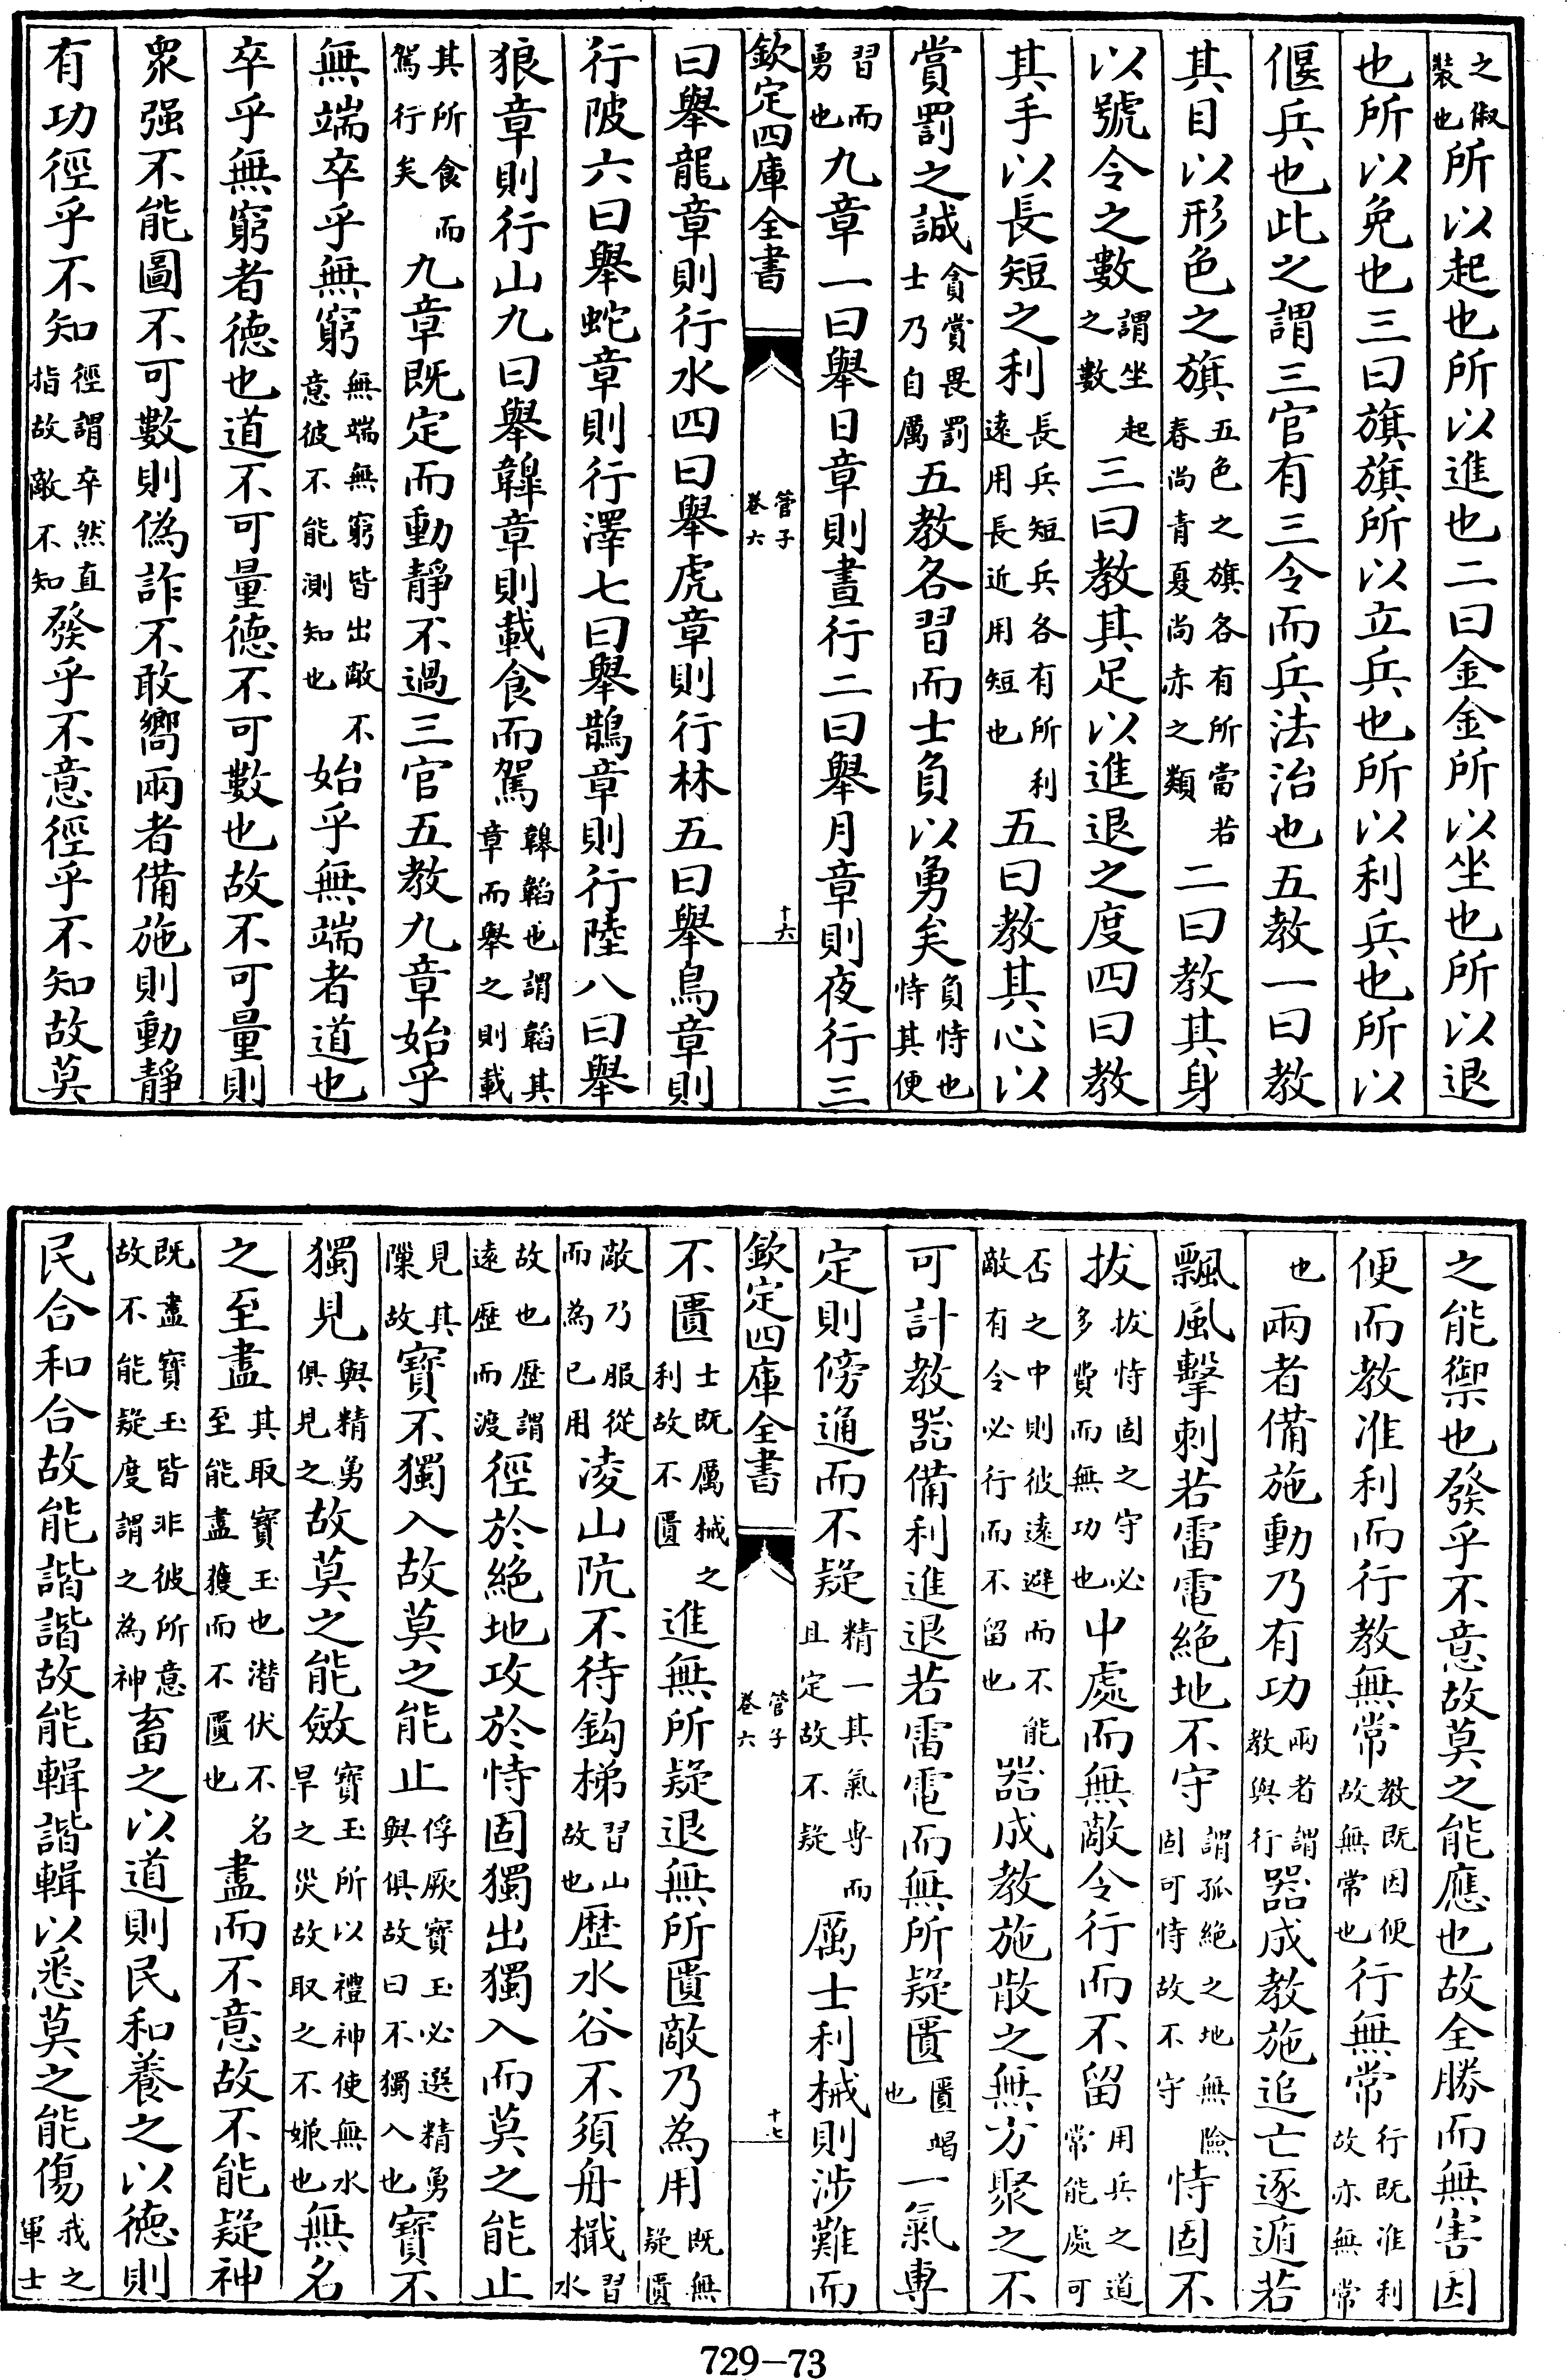 之俶裝也所以起也所以進也二曰金金所以坐也所以退
也所以免也三曰旗旗所以立兵也所以利兵也所以
偃兵也此之謂三官有三令而兵法治也五教一曰教
其目以形色之旗五色之旗各有所當若春尚青夏尚赤之類二曰教其身
以號令之數謂坐起之數三曰教其足以進退之度四曰教
其手以長短之利長兵短兵各有所利遠用長近用短也五曰教其心以
賞罰之誠貪賞畏罰士乃自厲五教各習而士負以勇矣負恃也恃其便
習而勇也九章一曰舉日章則晝行二曰舉月章則夜行三
欽定四庫全書 管子卷六 十六
曰舉龍章則行水四曰舉虎章則行林五曰舉烏章則
行陂六曰舉蛇章則行澤七曰舉鵲章則行陸八曰舉
狼章則行山九曰舉韟章則載食而駕韟韜也謂韜其章而舉之則載
其所食而駕行矣九章既定而動靜不過三官五教九章始乎
無端卒乎無窮無端無窮皆出敵不意彼不能測知也始乎無端者道也
卒乎無窮者德也道不可量德不可數也故不可量則
衆强不能圖不可數則偽詐不敢嚮兩者備施則動靜
有功徑乎不知徑謂卒然直指故敵不知發乎不意徑乎不知故莫
之能禦也發乎不意故莫之能應也故全勝而無害因
便而教准利而行教無常教既因便故無常也行無常行既准利故亦無常
也兩者備施動乃有功兩者謂教與行器成教施追亡逐遁若
飄風擊刺若雷電絶地不守謂孤絶之地無險固可恃故不守恃固不
拔拔恃固之守必多費而無功也中處而無敵令行而不留用兵之道常能處可
否之中則彼遠避而不能敵有令必行而不留也器成教施散之無方聚之不
可計教器備利進退若雷電而無所疑匱匱竭也一氣專
定則傍通而不疑精一其氣專而且定故不疑厲士利械則涉難而
欽定四庫全書 管子卷六 十七
不匱士既厲械之利故不匱進無所疑退無所匱敵乃為用既無疑匱
敵乃服從而為已用凌山阬不待鈎梯習山故也歷水谷不須舟檝習水
故也歷謂遠歷而渡徑於絶地攻於恃固獨出獨入而莫之能止
見其隟故寶不獨入故莫之能止俘厥寶玉必選精勇與俱故曰不獨入也寶不
獨見與精勇俱見之故莫之能斂寶玉所以禮神使無水旱之災故取之不嫌也無名
之至盡其取寶玉也潛伏不名至能盡獲而不匱也盡而不意故不能疑神
既盡寶玉皆非彼所意故不能疑度謂之為神畜之以道則民和養之以德則
民合和合故能諧諧故能輯諧輯以悉莫之能傷我之軍士
729-73